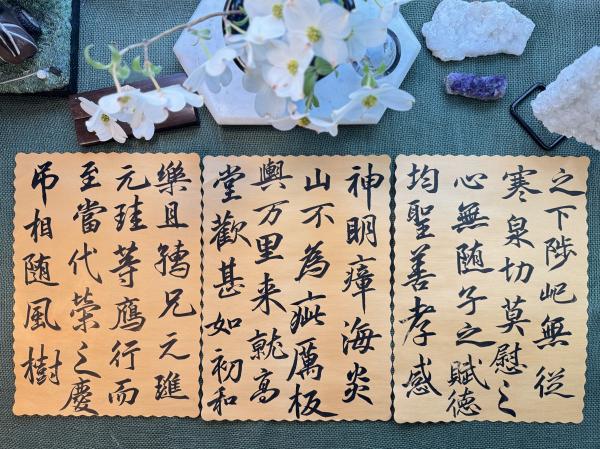 之下陟屺無從
寒泉切莫慰之
心無随子之賦德
均聖善孝感
神明瘴海炎
山不為疵厲板
輿万里来就高
堂歡甚如初和
樂且孺兄元璡
元珪等鷹行而
至當代榮之慶
吊相随風樹